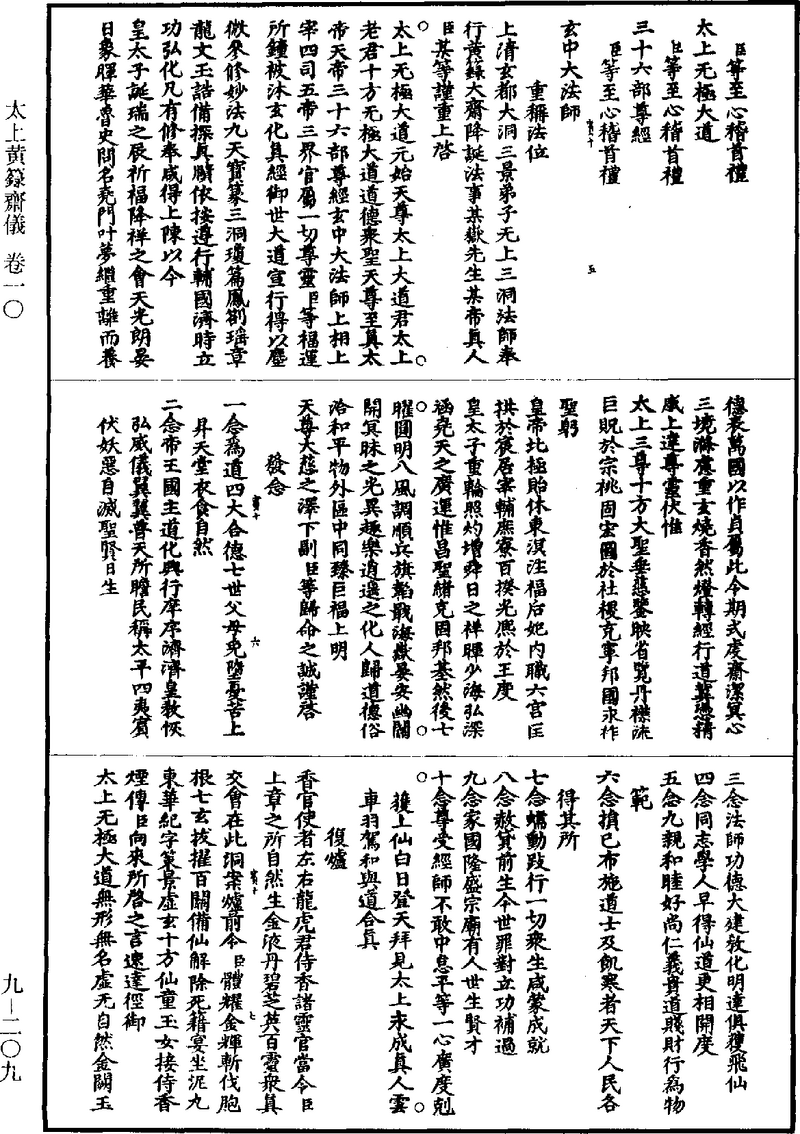 臣等至心稽首禮
太上无極大道
臣等至心稽首禮
三十六部尊經
臣等至心稽首禮
玄中大法師
重稱法位
上清玄都大洞三景弟子无上三洞法師奉
行黃籙大齋降誕法事某嶽先生某帝真人
臣某等謹重上啓
太上无極大道元始天尊太上大道君太上
老君十方无極大道道德衆聖天尊至真太
帝天帝三十六部尊經玄中大法師上相上
宰四司五帝三界官屬一切尊靈臣等福運
所鍾被沐玄化真經御世大道宣行得以塵
微來修妙法九天寶篆三洞瓊篇鳳劄瑶章
龍文玉誥備探真賾依按遵行輔國濟時立
功弘化凡有修奉咸得上陳以今
皇太子誕瑞之辰祈福降祥之會天光朗晏
日象暉華魯史問名堯門叶夢繼重離而養
德表萬國以作貞屬此今期式虔齋潔冥心
三境滌慮重玄燒香然燈轉經行道冀憑精
感上達尊靈伏惟
太上三尊十方大聖垂慈鑒映省覽丹襟流
巨貺於宗祧固宏圖於社稷克寧邦國永祚
聖躬
皇帝北極貽休東溟注福后妃内職六宮匡
拱於宸居宰輔庶寮百揆光熙於王度
皇太子重輪照灼增舜日之祥暉少海弘深
涵堯天之廣運惟昌聖緒克固邦基然後七
曜圓明八風調順兵旗韜戢海嶽晏安幽關
開冥昧之光異趣樂逍遥之化人歸道德俗
洽和平物外區中同臻巨福上明
天尊大慈之澤下副臣等歸命之誠謹啓
發念
一念爲道四大合德七世父母免墮憂苦上
昇天堂衣食自然
二念帝王國主道化興行庠序濟濟皇教恢
弘威儀翼翼普天所瞻民稱太平四夷賓
伏妖惡自滅聖賢日生
三念法師功德大建教化明達俱獲飛仙
四念同志學人早得仙道更相開度
五念九親和睦好尚仁義貴道賤財行爲物
範
六念損己布施道士及飢寒者天下人民各
得其所
七念蠕動跂行一切衆生咸蒙成就
八念赦貸前生今世罪對立功補過
九念家國隆盛宗廟有人世生賢才
十念尊受經師不敢中怠平等一心廣度剋
獲上仙白日登天拜見太上永成真人雲
車羽駕和與道合真
復爐
香官使者左右龍虎君侍香諸靈官當令臣
上章之所自然生金液丹碧芝英百靈衆真
交會在此洞案爐前令臣體耀金輝斬伐胞
根七玄拔擢百關備仙解除死籍宴坐泥丸
東華紀字策景虛玄十方仙童玉女接侍香
煙傳臣向來所啓之言速達徑御
太上无極大道無形無名虛无自然金闕玉
太上黃籙齋儀 卷一〇
九—二〇九
五
六
七